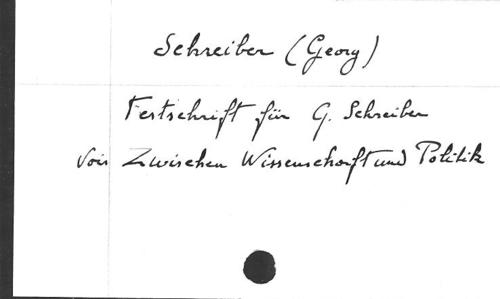 Schreiber (Georg)
Festschrift für G. Schreiber
Voir Zwischen Wissenschaft und Politik